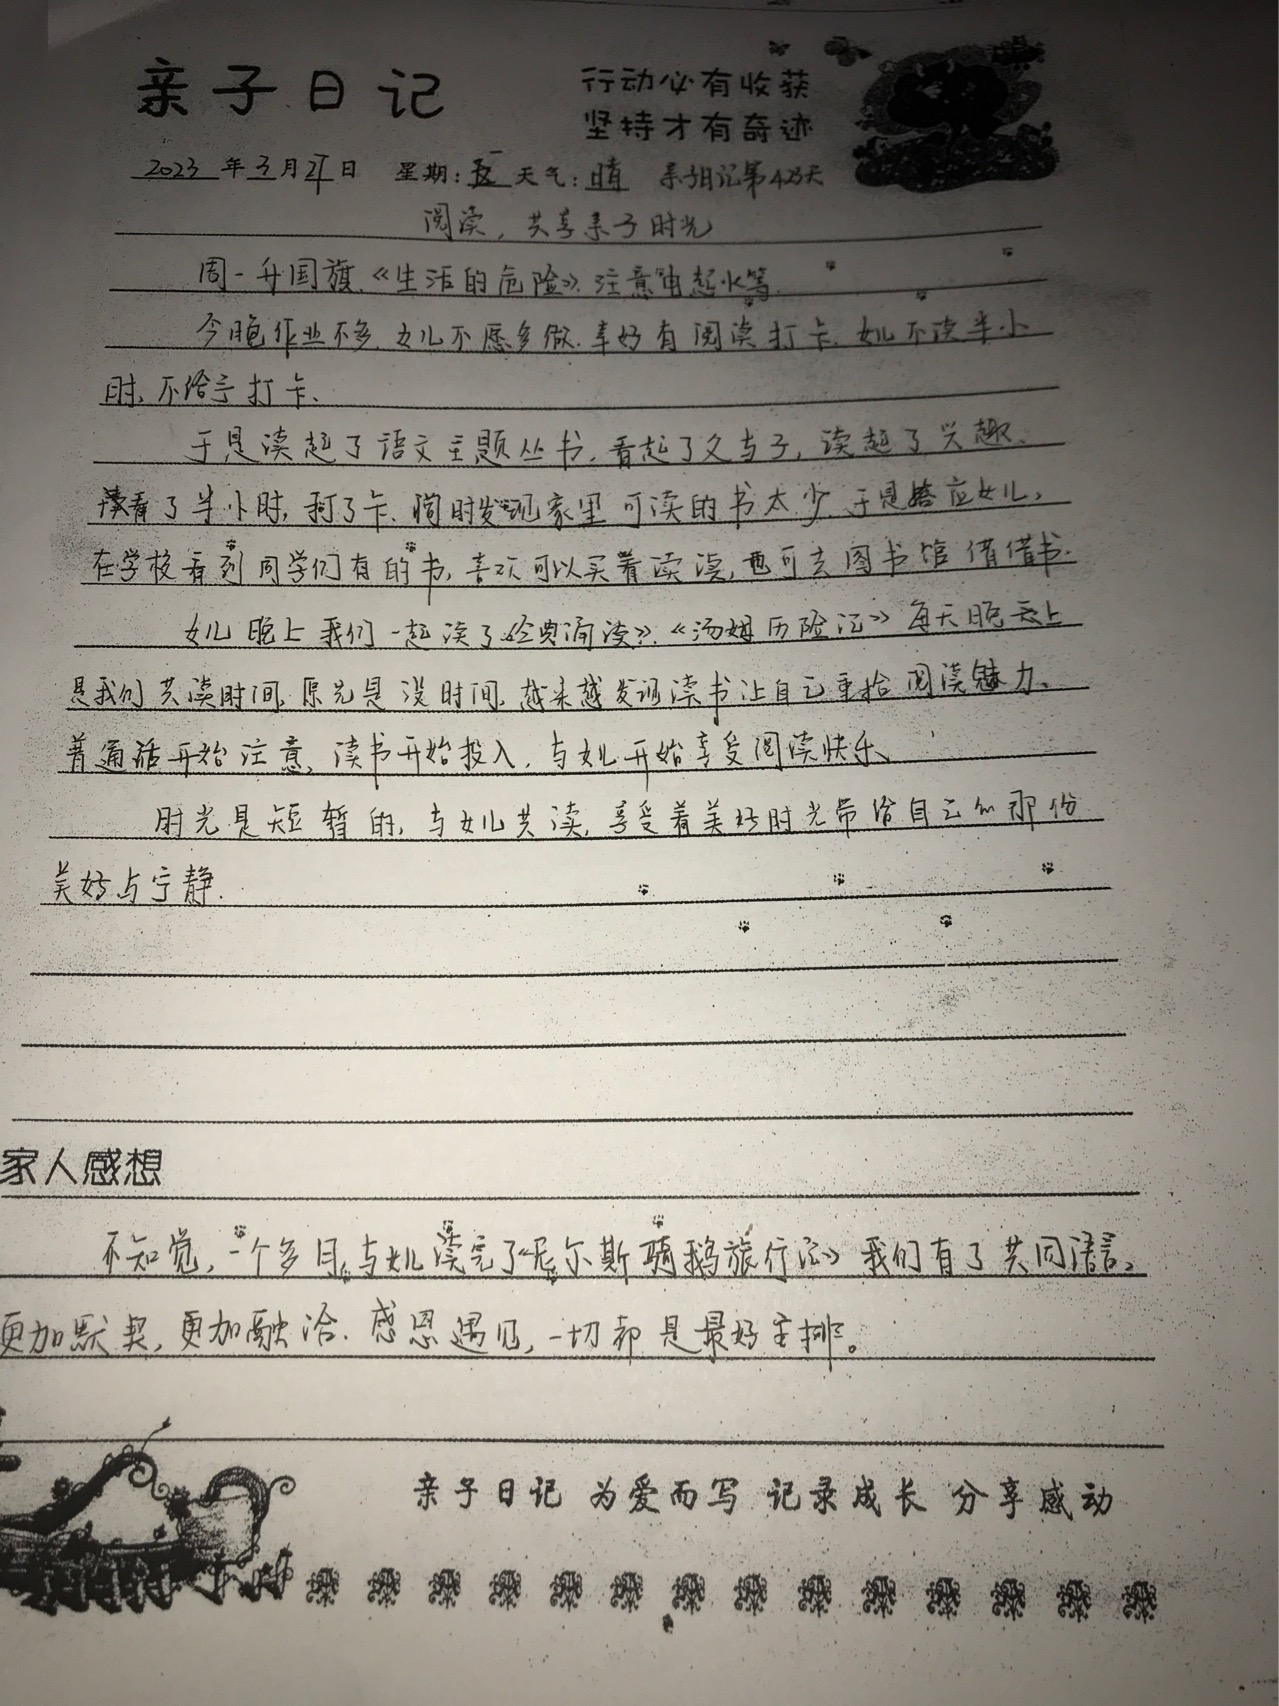 亲子日记
行动必有收获
坚持才有奇迹
2023年3月27日 星期:一 天气:晴 亲子日记第423天
阅读,共享亲子时光
周一升国旗.《生活的危险》.注意电起火等.
今晚作业不多.女儿不愿多做.幸好有阅读打卡.女儿不读半小
时,不给予打卡.
于是读起了语文主题丛书.看起了父与子,读起了兴趣.
读看了半小时,打了卡.同时发现家里可读的书太少.于是答应女儿,
在学校看到同学们有的书,喜欢可以买着读读,也可去图书馆借借书.
女儿晚上我们一起读了《经典诵读》.《汤姆历险记》每天晚上
是我们共读时间,原先是没时间,越来越发现读书让自己重拾阅读魅力.
普通话开始注意,读书开始投入,与女儿开始享受阅读快乐.
时光是短暂的,与女儿共读,享受着美好时光带给自己的那份
美好与宁静.
家人感想
不知觉,一个多月,与女儿读完了《尼尔斯骑鹅旅行记》我们有了共同语言,
更加默契,更加融洽.感恩遇见,一切都是最好安排。
亲子日记 为爱而写 记录成长 分享感动